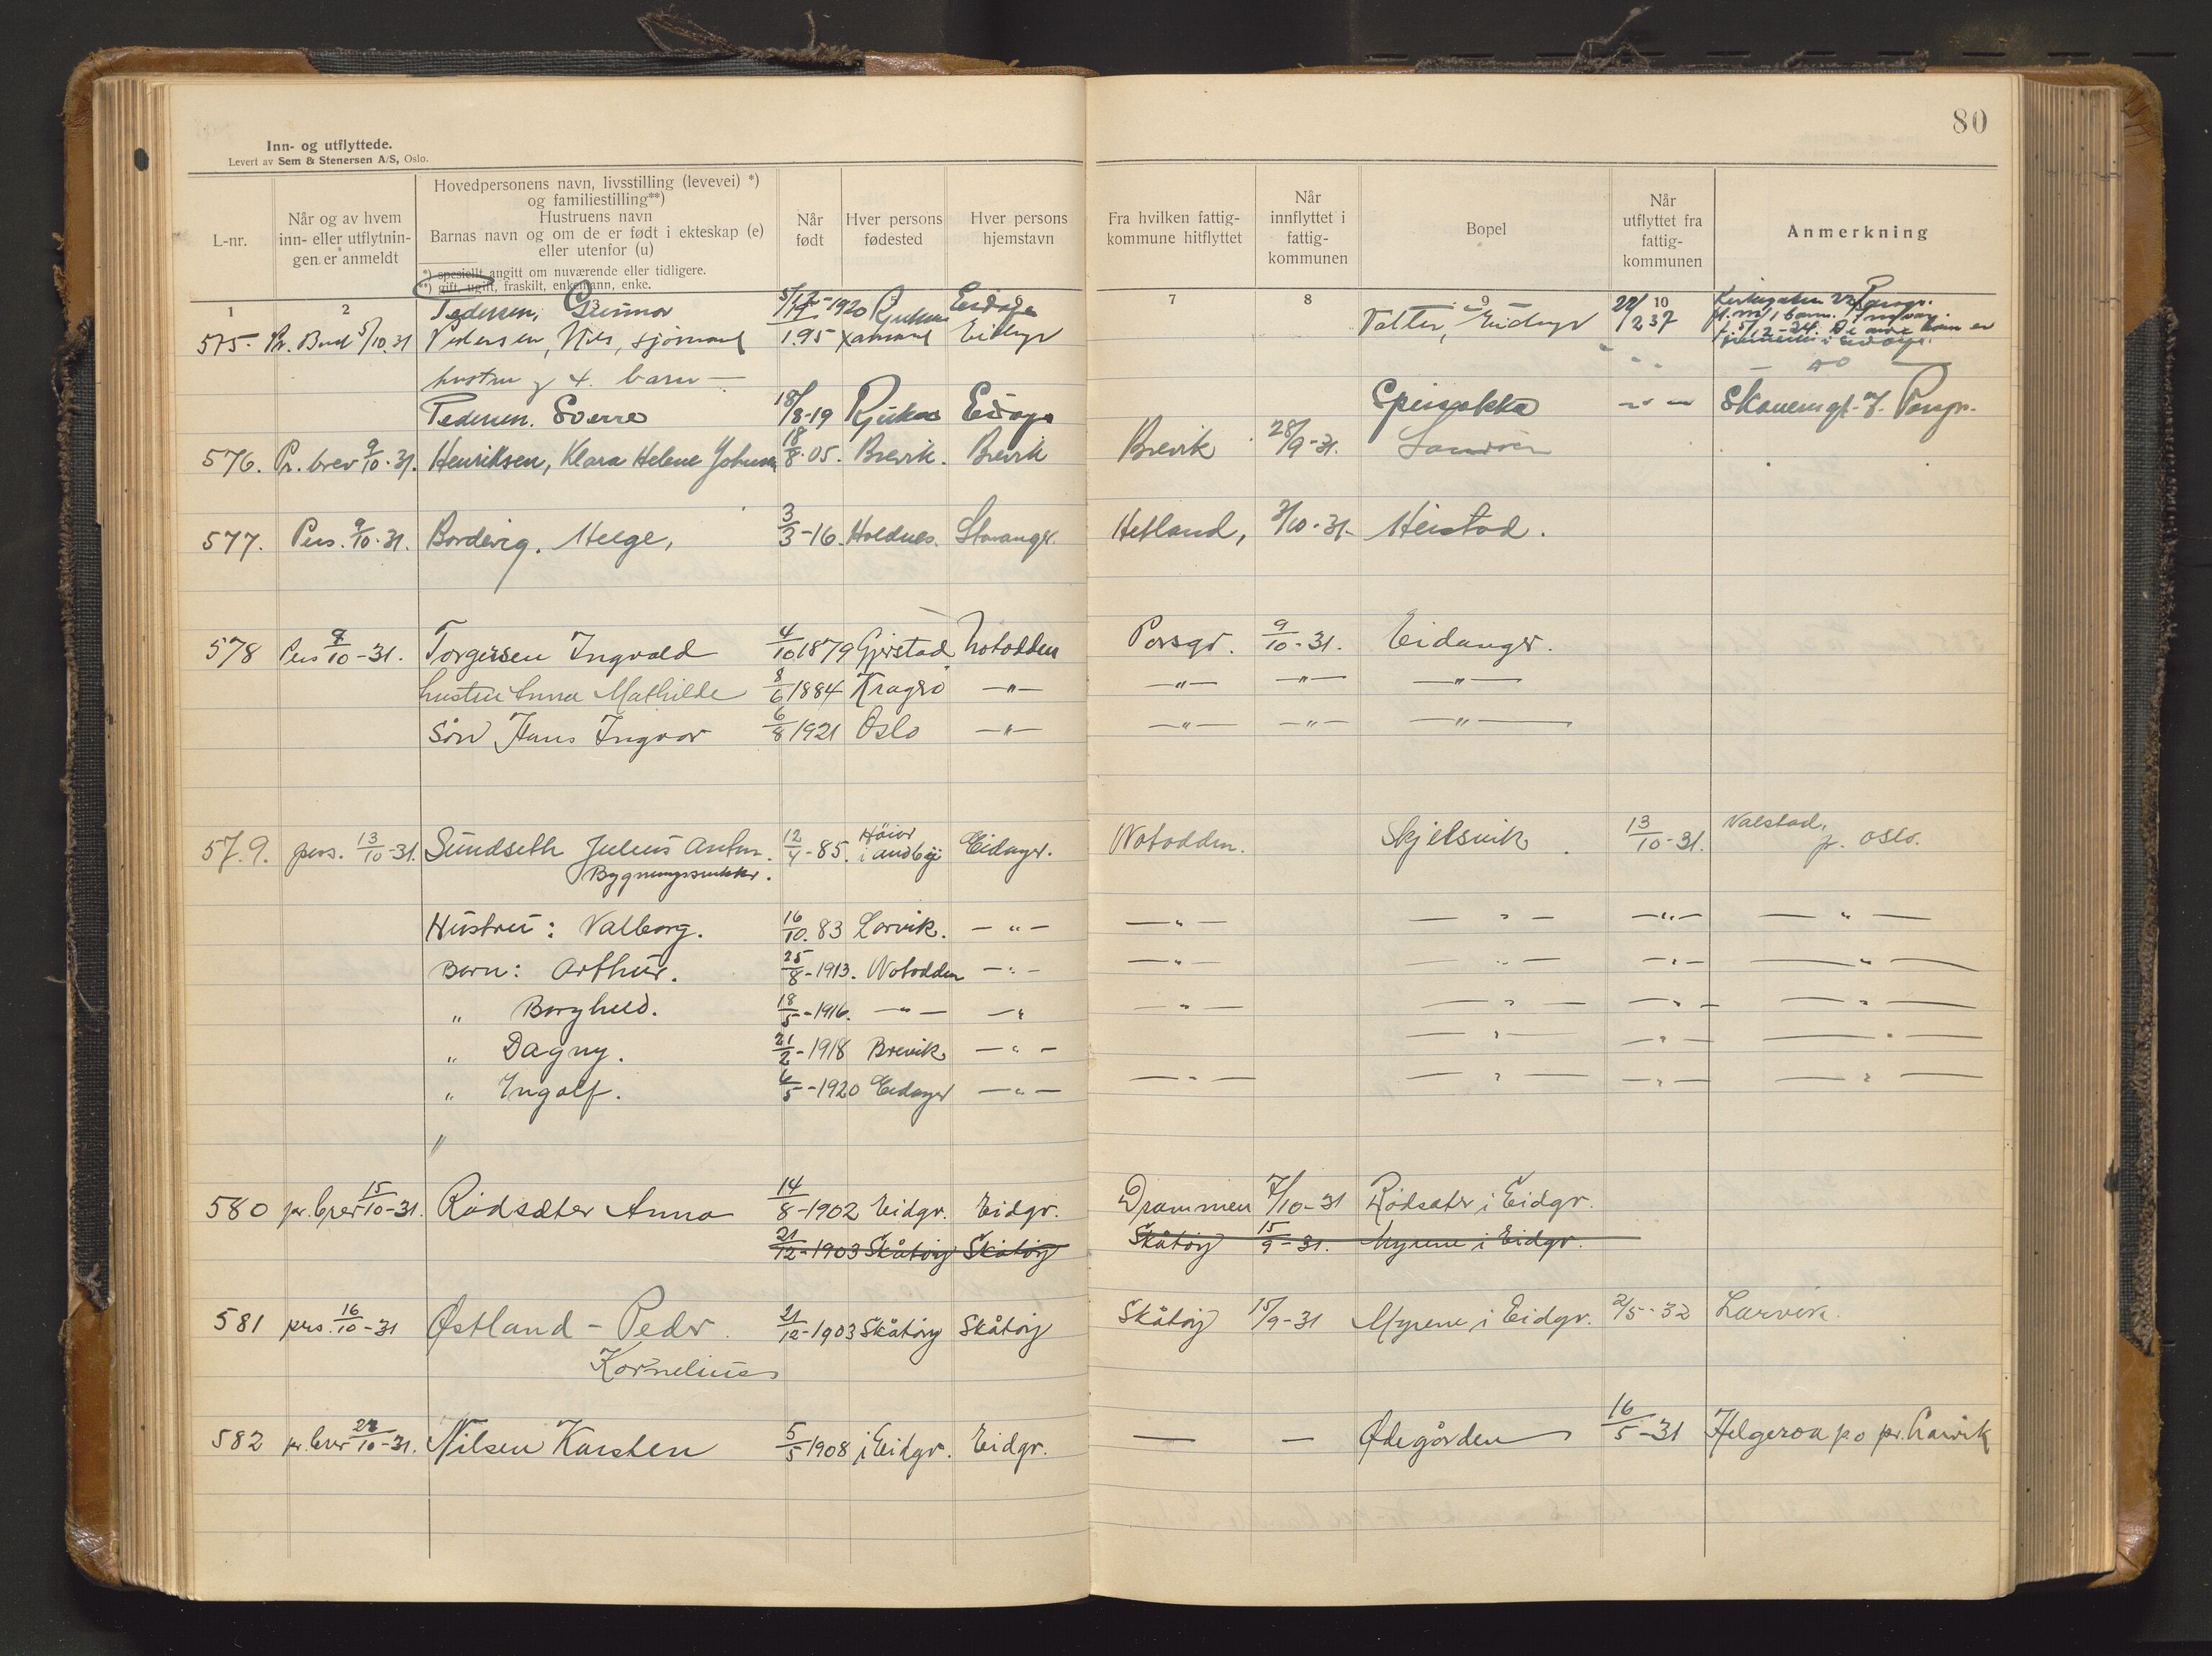 80
Inn- og utflyttede.
Levert av Sem & Stenersen A/S, Oslo.
L-nr.
Når og av hvem inn- eller utflytnin- gen er anmeldt
Hovedpersonens navn, livsstilling (levevei) *)
og familiestilling**)
Hustruens navn
Barnas navn og om de er født i ekteskap (e)
eller utenfor (u)
*) spesiellt angitt om nuværende eller tidligere.
**) gift, ugift, fraskilt, enkemann, enke.
Når født
Hver persons fødested
Hver persons hjemstavn
Fra hvilken fattig- kommune hitflyttet
Når innflyttet i fattig- kommunen
Bopel
Når utflyttet fra fattig- kommunen
Anmerkning
1 2 7 8 9 10
Pedersen, Gunnar 5/12-1920 Rjukan Eidage
575. Pr. Bud 5/10.31 Pedersen, Nils, sjømand 1.95 Eidgr Valler, Eidngr 22/2 37
hustru og 4. barn —
Pedersen. Sverre 18/8-19 Rjukan Eidage — " — Skauengt. 7. Porsgr.
576. Pr. brev 9/10.31. Henriksen, Klara Helene Johnsen 18/8.05. Brevik. Brevik Brevik 28/9-31.
577. Pers. 9/10.31. Bordevig. Helge, 3/3-16. Holdnes. Stavanger. Hetland, 2/10-31. Heistad.
578 Pers 9/10-31. Torgersen Ingvald 4/10 1879 Gjerstad Notodden Porsgr. 9/10-31. Eidanger.
hustru Anna Mathilde 8/6 1884 Kragerø —"— —"— —"— —"—
Søn Hans Ingvar 6/8 1921 Oslo —"— —"— —"— —"—
579. pers. 13/10-31. Sundseth Julius Anton. 12/4-85. Høier i andeby Eidanger. Notodden. Skjelsvik. 13/10-31. Valstad, p. Oslo.
Bygningssnekker.
Hustru: Valborg. 16/10.83 Larvik. —"— —"— —"— —"— —"—
Barn: Arthur. 25/8-1913. Notodden —"— —"— —"— —"— —"—
" Borghild. 18/5-1916. —"— —"— —"— —"— —"— —"—
" Dagny. 21/2-1918 Brevik —"— —"— —"— —"—
" Ingolf. 4/5-1920 Eidanger —"— —"— —"— —"— —"—
"
580 pr. brev 15/10-31. Rødsæter Anna 14/8-1902 Eidgr. Eidgr. Drammen 7/10-31 Rødsæter i Eidgr.
21/12-1903 Skåtøy Skåtøy Skåtøy 15/9-31. Myrene i Eidgr.
581 pers. 16/10-31 Østland - Peder. 21/12-1903 Skåtøy Skåtøy Skåtøy 15/9-31 Myrene i Eidgr. 2/5-32 Larvik.
Kornelius
582 pr. brev 23/10-31. Nilsen Karsten 5/5 1908 i Eidgr. Eidgr. — — Ødegården 16/5-31 Helgeroa p.o pr. Larvik